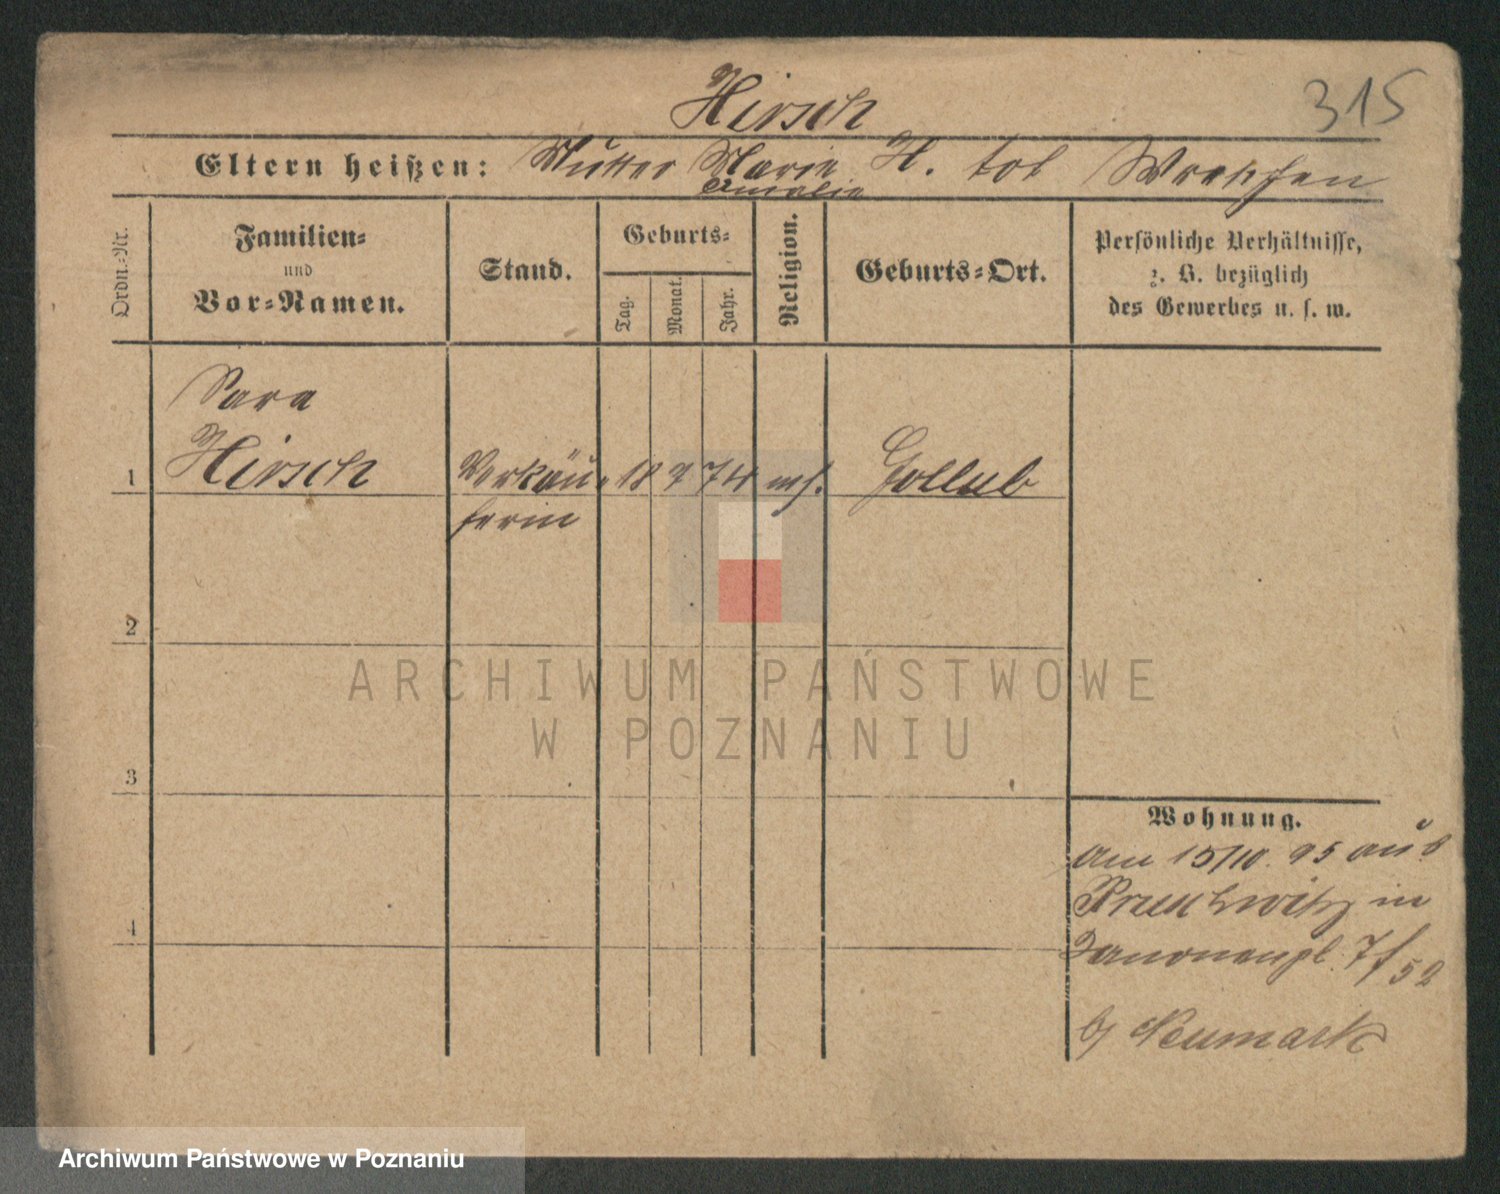 Hirsch
315
Eltern heißen: Mutter Marie H. tot Wreschen
Amalie
Ordn.-Nr.
Familien-
und
Vor-Namen.
Stand.
Geburts-
Tag.
Monat.
Jahr.
Religion.
Geburts-Ort.
Persönliche Verhältnisse,
z. B. bezüglich
des Gewerbes u. s. w.
Sara
1 Hirsch Verkäu- 18 9 74 mos. Gollub
ferin
2
3
4
Wohnung.
Am 15/10. 95 aus
in
Kanonenpl. 7/52
b/ Neumark
ARCHIWUM PAŃSTWOWE
W POZNANIU
Archiwum Państwowe w Poznaniu